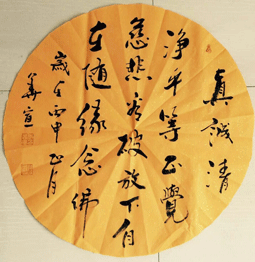 真誠清
净平等正覺
慈悲看破放下自
在随缘念佛
歲在丙申正月
華宣